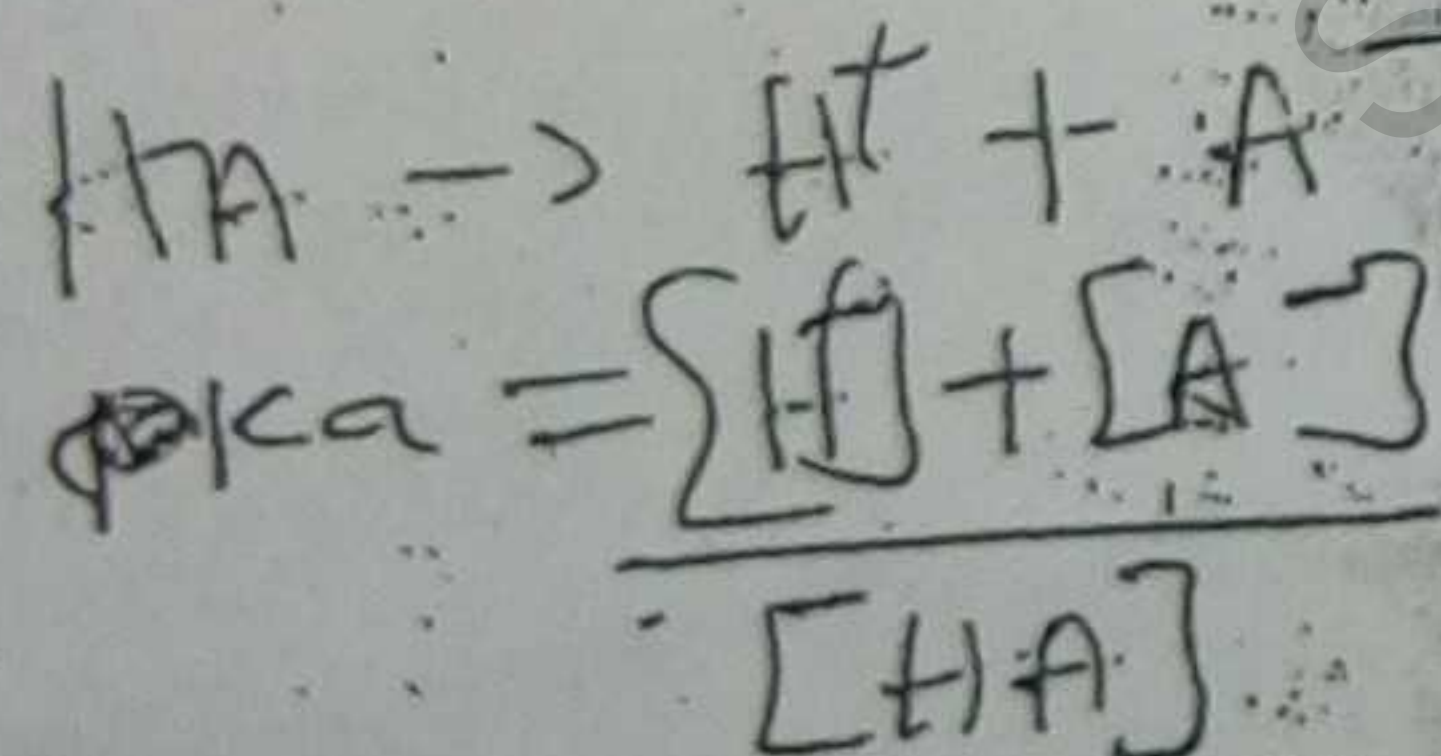 HA -> H⁺ + A⁻
Ka = [H⁺] + [A⁻]
[HA]